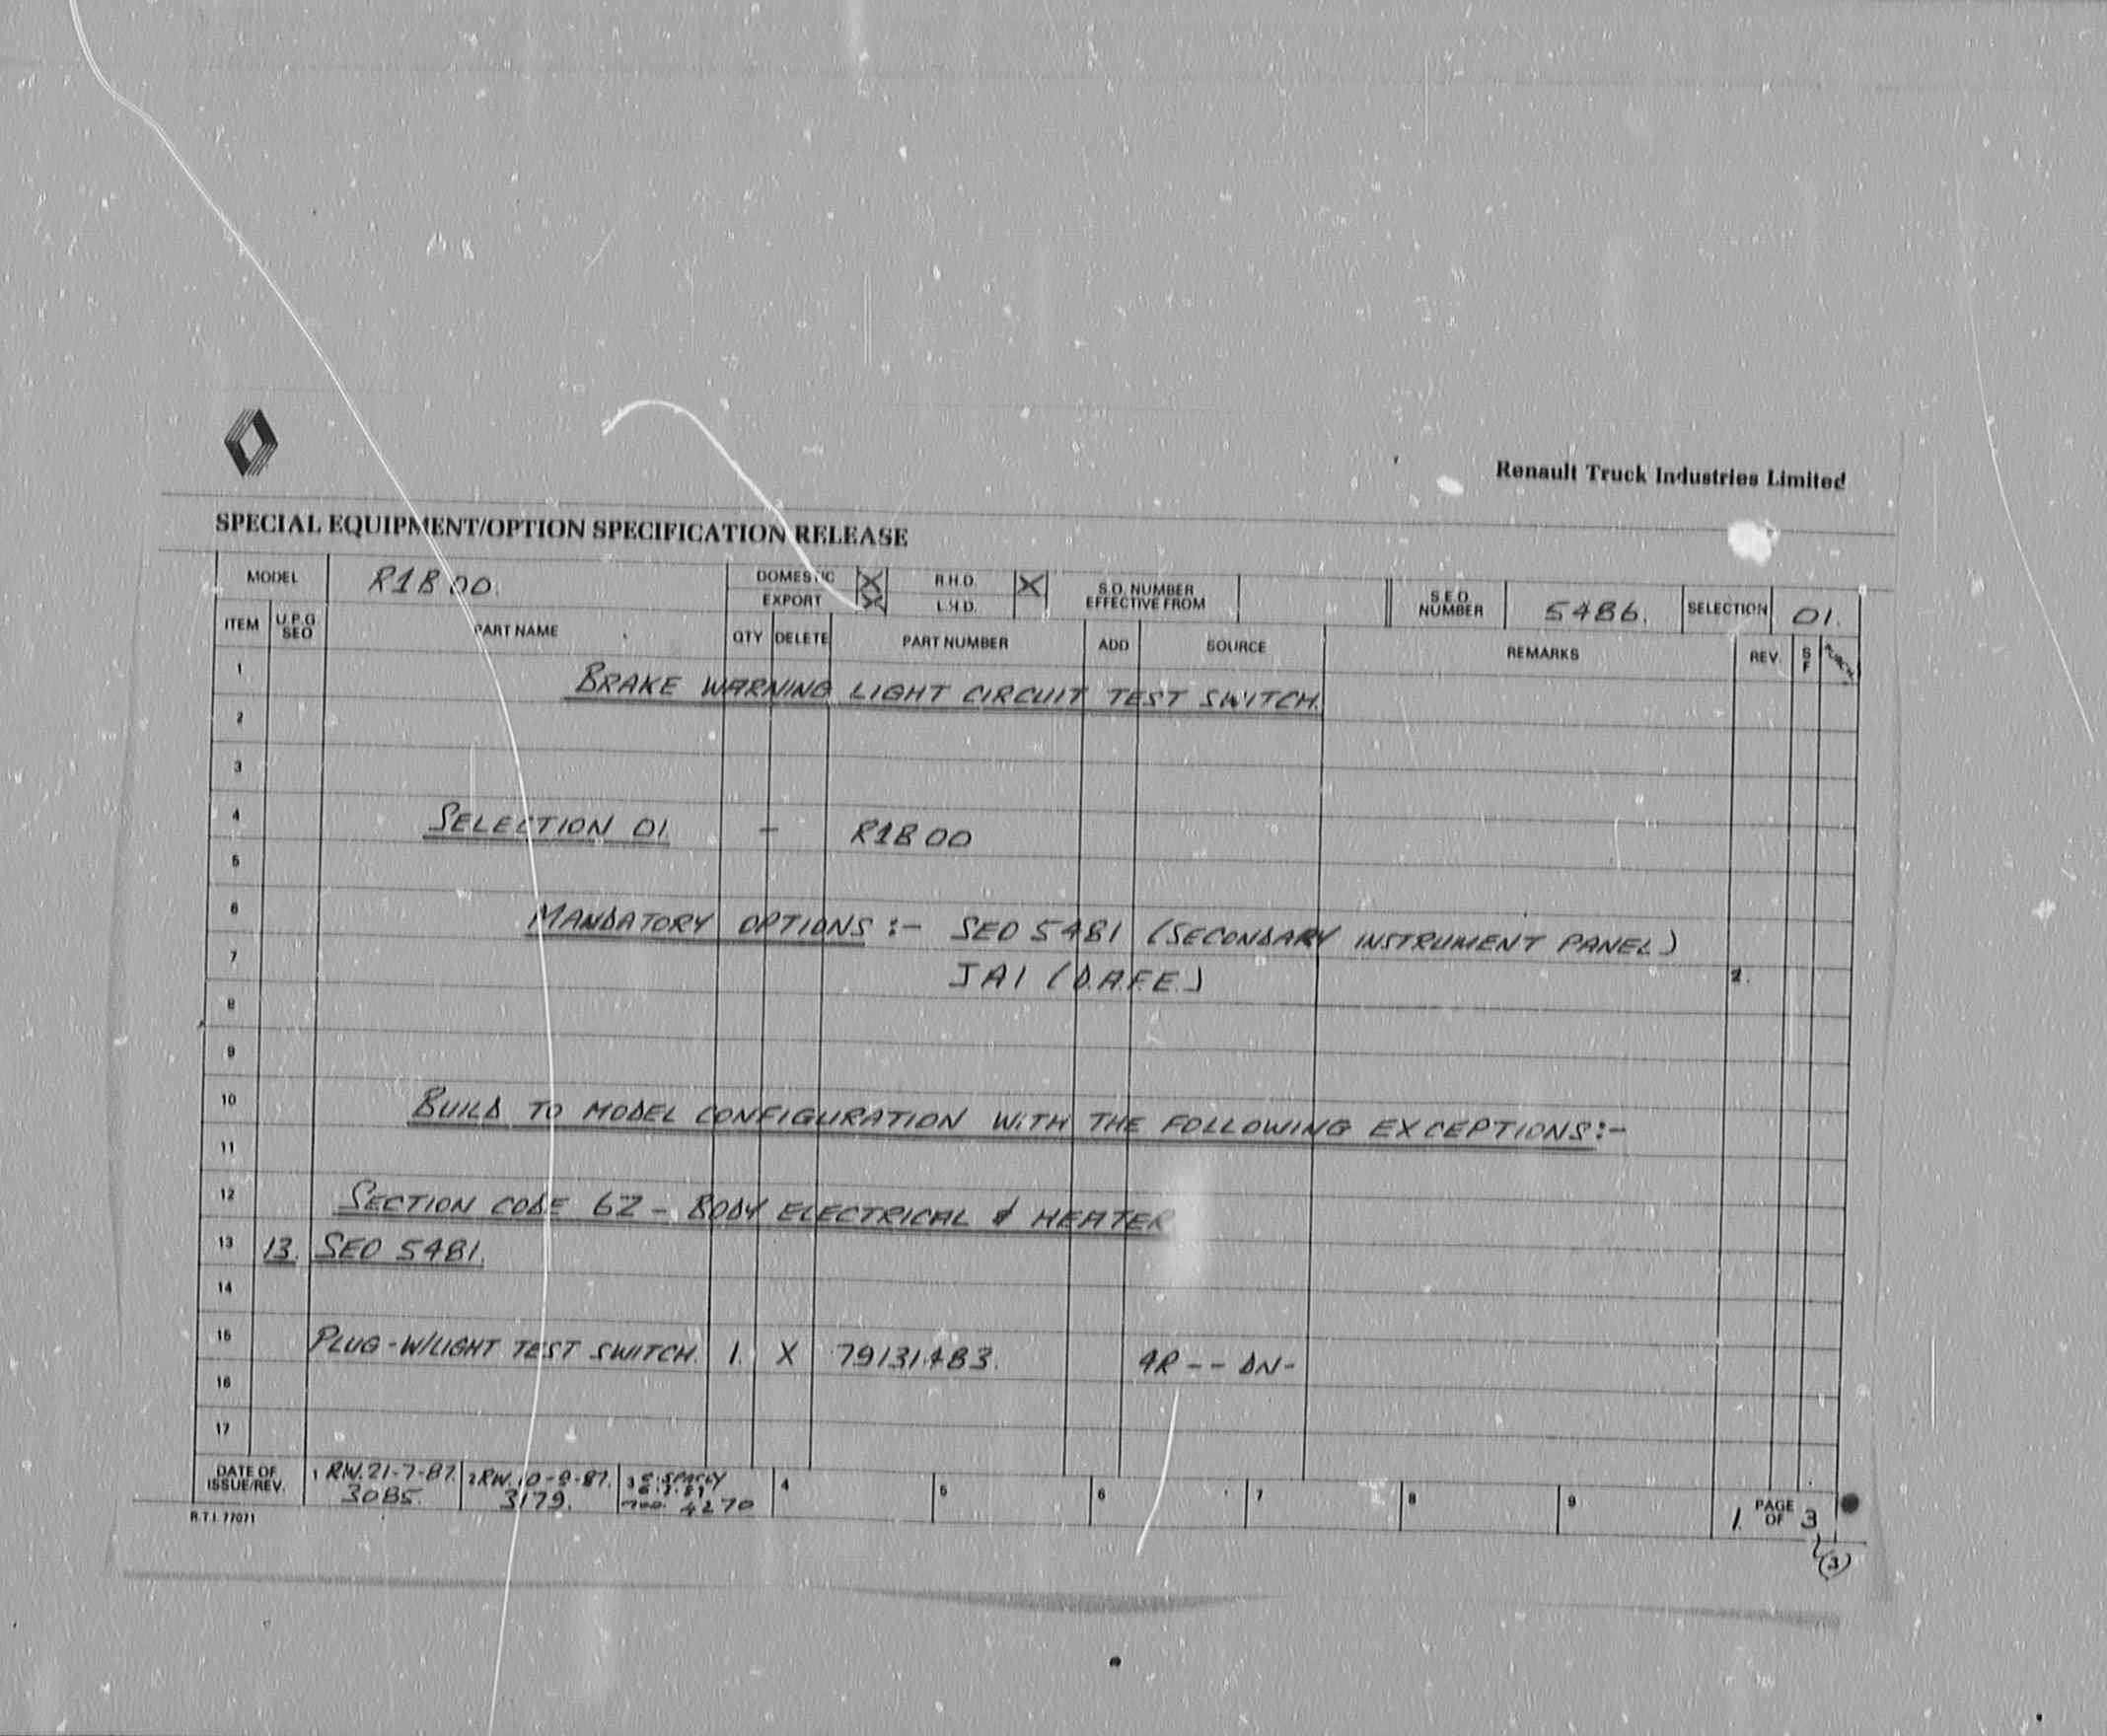 Renault Truck Industries Limited
SPECIAL EQUIPMENT/OPTION SPECIFICATION RELEASE
MODEL R1B00. DOMESTIC X R.H.D. X S.O. NUMBER EFFECTIVE FROM S.E.O. NUMBER 5486. SELECTION 01.
EXPORT X L.H.D.
ITEM U.P.G. SEO PART NAME QTY DELETE PART NUMBER ADD SOURCE REMARKS REV. S F
1 BRAKE WARNING LIGHT CIRCUIT TEST SWITCH.
2
3
4 SELECTION 01 - R1B00
5
6 MANDATORY OPTIONS :- SEO 5481 (SECONDARY INSTRUMENT PANEL)
7 JA1 (D.A.F.E.) 2.
8
9
10 BUILD TO MODEL CONFIGURATION WITH THE FOLLOWING EXCEPTIONS:-
11
12 SECTION CODE 62 - BODY ELECTRICAL & HEATER
13 13. SEO 5481.
14
15 PLUG-W/LIGHT TEST SWITCH. 1. X 79131483. 9R -- DN-
16
17
DATE OF ISSUE/REV. 1 RW. 21-7-87. 3085. 2 RW. 10-9-87. 3179. 3 4270 4 5 6 7 8 9 1. PAGE OF 3
R.T.I. 77071
(3)